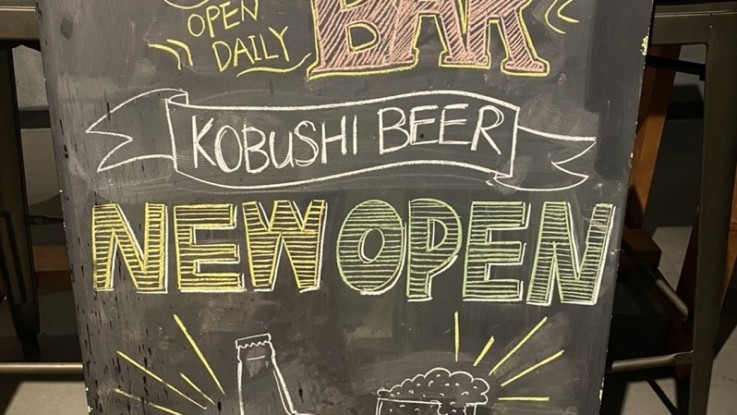 OPEN
DAILY
BAR
KOBUSHI BEER
NEW OPEN